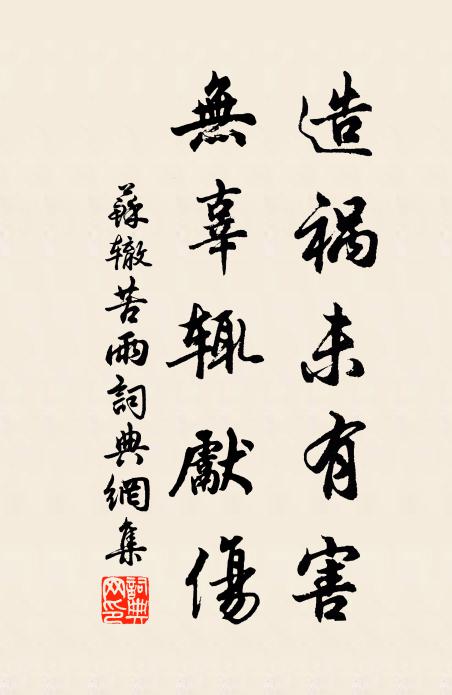 造祸未有害
無辜辄獻傷
蘇辙苦雨詞典網集
詞典网印